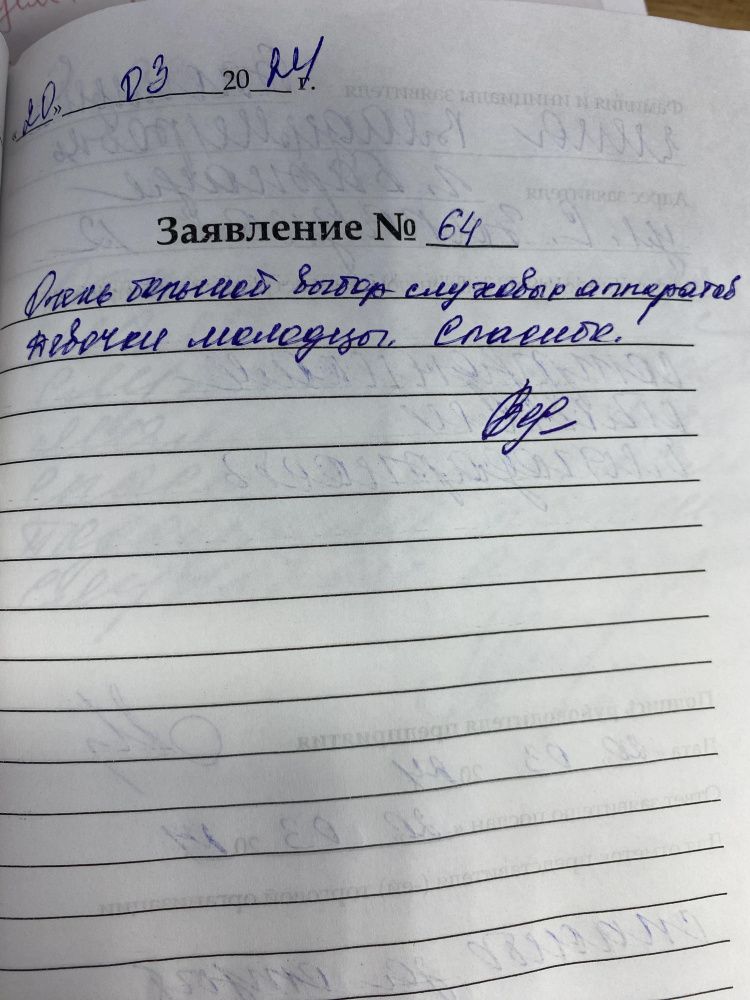 «20» 03 2024 г.
Заявление № 64
Очень большой выбор слуховых аппаратов
девочки молодцы. Спасибо.